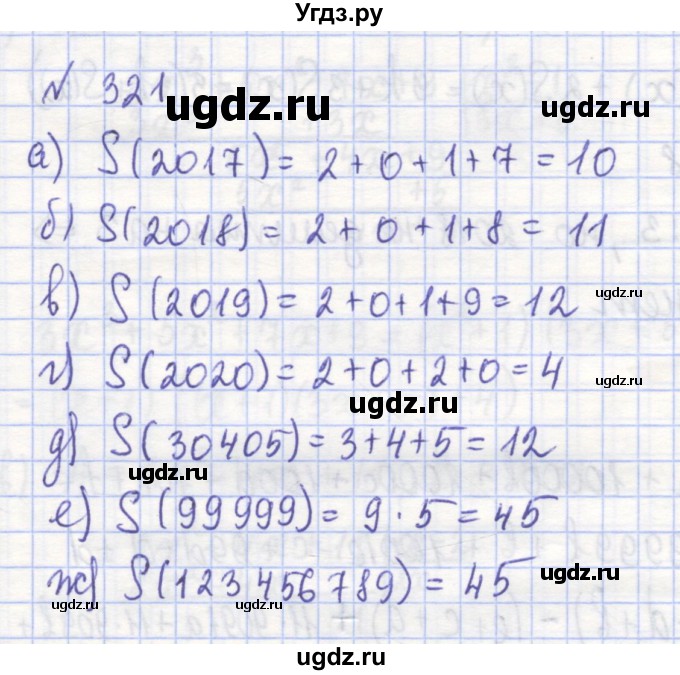 Угдз.ру
№ 321
ugdz.ru
а) S(2017) = 2+0+1+7 = 10
б) S(2018) = 2+0+1+8 = 11
в) S(2019) = 2+0+1+9 = 12
ugdz.ru
г) S(2020) = 2+0+2+0 = 4
ugdz.ru
д) S(30405) = 3+4+5 = 12
ugdz.ru
е) S(99999) = 9·5 = 45
ж) S(123456789) = 45
ugdz.ru
ugdz.ru
ugdz.ru
ugdz.ru